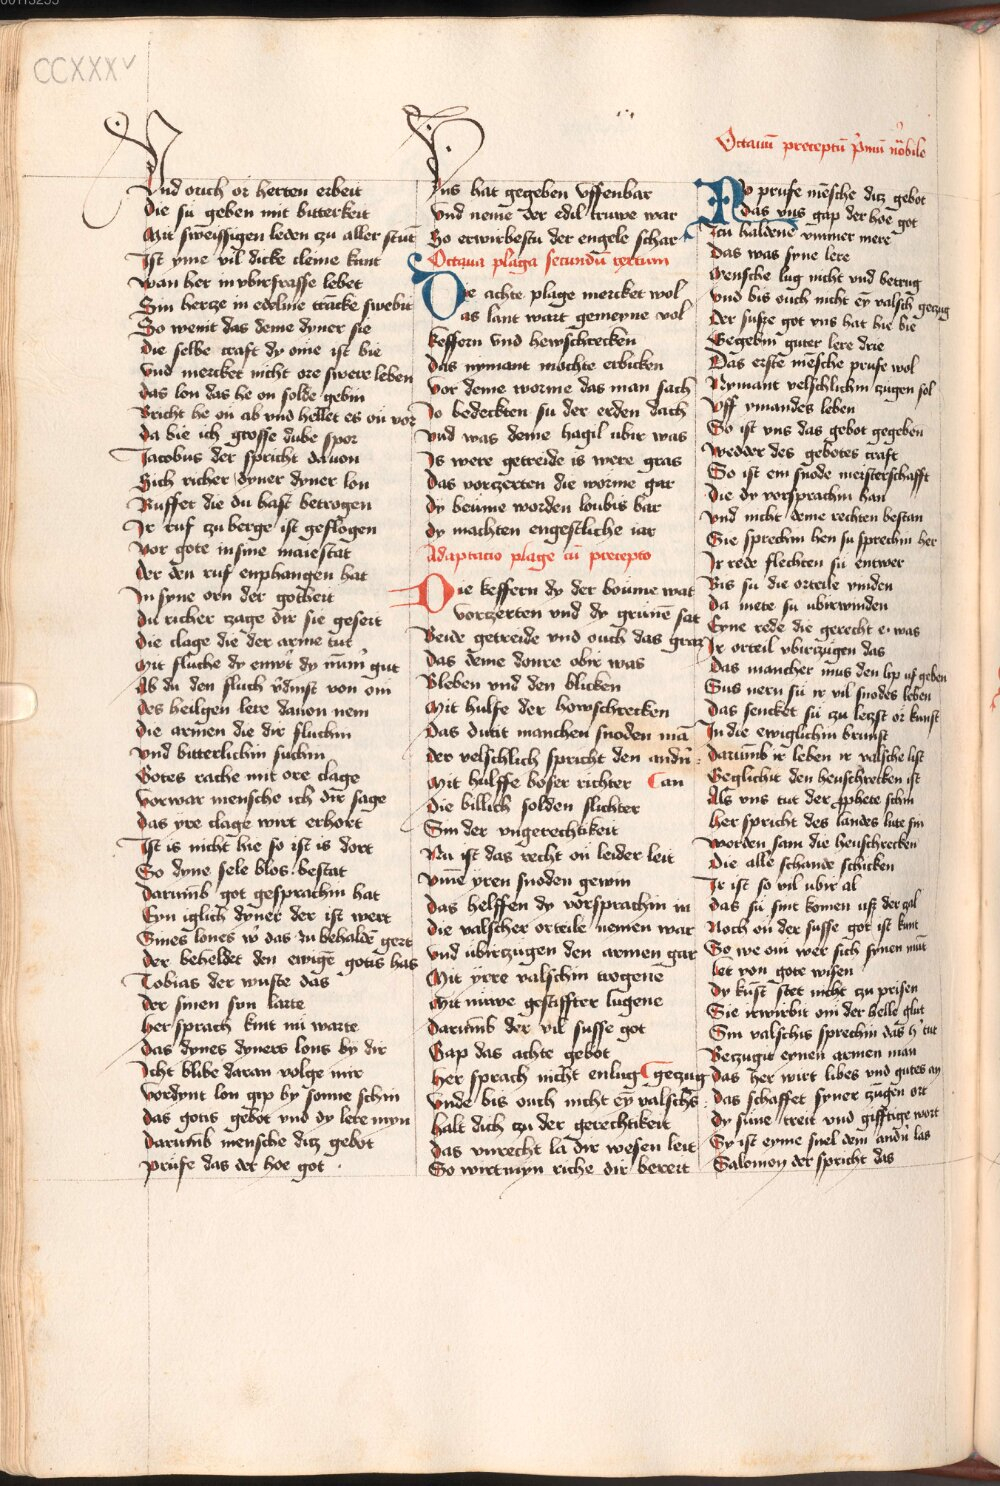 CCXXXV
Vnd orich or herten erbeit
Die sü geben mit bitterkeit
Mit sweissigen leden czu aller stūt
Ist yme vil dicke cleine kunt
wan her in vbirfrasse lebet
Sin hercze in edelme trācke swebit
So wenit das deme dyner sie
Die selbe craft dy ome ist bie
vnd mercket nicht ore swere leben
das lon das he on solde gebin
Bricht he on ab vnd hellet es on vor
da bie ich grosse dube spor
Jacobus der spricht dauon
Sich richer dyner dyner lon
Ruffet die du hast betrogen
Ir ruf zu berge ist geflogen
Vor gote in sine maiestat
Der den ruf enphangen hat
In syne orn der gotheit
Du richer zage dir sie geseit
Die clage die der arme tut
Mit fluche dy
Ab du den fluch v̄dinst von om
des heilgen lere dauon nem
Die armen die dir fluchin
vnd bitterlichin suchin
Gotes rache mit ore clage
Vorwar mensche ich dir sage
Das yre clage wirt erhort
Ist is nicht hie so ist is dort
So dyne sele blos bestat
Darumb got gesprachin hat
Eyn iglich dyner der ist wert
Sines lones das zu behaldē gert
Der beheldet den ewigē gotis has
Tobias der wuste das
Der sinen son larte
Her sprach kint mi warte
Das dynes dyners lons by dir
Icht blibe daran volge mir
Vordynt lon gip by sonne schin
Das gotis gebot vnd dy lere myn
Darumb mensche ditz gebot
prüfe das der hoe got
Vns hat gegeben vffenbar
Vnd neme der edil truwe war
So erwirbestu der engele schar
Octaua plaga secundū textum
Die achte plage mercket wol
Das lant wart gemeyne vol
keffern vnd hewschrecken
Das nymant mochte erbicken
Vor deme worme das man sach
Jo bedeckten su der erden dach
Vnd was deme hagil ubir was
Is were getreide is were gras
Das vorczerten die worme gar
Dy beume worden loubis bar
Dy machten engestliche iar
Adaptatio plage cū precepto
Die keffern dy der boume wat
vorczerten vnd dy grünē sat
Beide getreide vnd ouch das gras
Das deme donre obir was
Bleben vnd den blicken
Mit hulfe der howschrecken
Das dutit manchen snoden mā
Der velschlich spricht den andn̄
Mit hulffe boser richter an
Die billich solden slichter
Sin der vngerechtikeit
Nu ist das recht on leider leit
vmē yren snoden gewin
Das helffen dy vorsprachin in
Die valscher orteile nemen war
vnd übirczügen den armen gar
Mit yrre valschin trogene
Mit nuwe gestiffter lugene
Darumb der vil susse got
Gap das achte gebot
Her sprach nicht enlug geczug
Vnde bis ouch nicht ey valschs
Halt dich czu der gerechtikeit
Das vnrecht la dir wesen leit
So wirt myn riche dir bereit
Octauū preceptū
Nv prufe mēsche ditz gebot
Das vns gap der hoe got
Icu haldene vmmer mere
Das was syne lere
Mensche lug nicht vnd betrug
Vnd bis ouch nicht ey valsch geczug
Der susze got vns hat hie bie
Gegebin guter lere drie
Das erste mēsche prufe wol
Nymant velschlichin zugen sol
Vff ymandes leben
So ist vns das gebot gegeben
Wedder des gebotes craft
So ist em snode meisterschafft
Die dy vorsprachin han
Vnd nicht deme rechten bestan
Sie sprechin hen su sprechin her
Ir rede flechten sü entwer
Bis su die orteile vinden
Da mete su ubirwinden
Eyne rede die gerecht e was
Ir orteil vbirczugen das
Das mancher mus den lip uf geben
Sus nern sü ir vil snodes leben
Das sencket sü czu leczst or kunst
In die ewiglichin brunst
Darumb ir leben ir valsche list
Geglichit den heuschrecken ist
Als vns tut der pphete schin
Her spricht des landes lute sin
Worden sam die heuschrecken
Die alle schande schicken
Ir ist so vil ubir al
Das sü sint komen usz der zal
Noch on der susse got ist kunt
So we om wer sich synen mūt
Let von gote wisen
Dy kūst stet nicht czu prisen
Sie irwirbit om der helle glut
Sin valschis sprechin das h' tut
Beczugit eynen armen man
Das her wirt libes vnd gutes an
Das schaffet syner czūgen ort
Dy süne treit vnd gifftige wort
Sy ist eyme snel dem andn̄ las
Salomon der spricht das